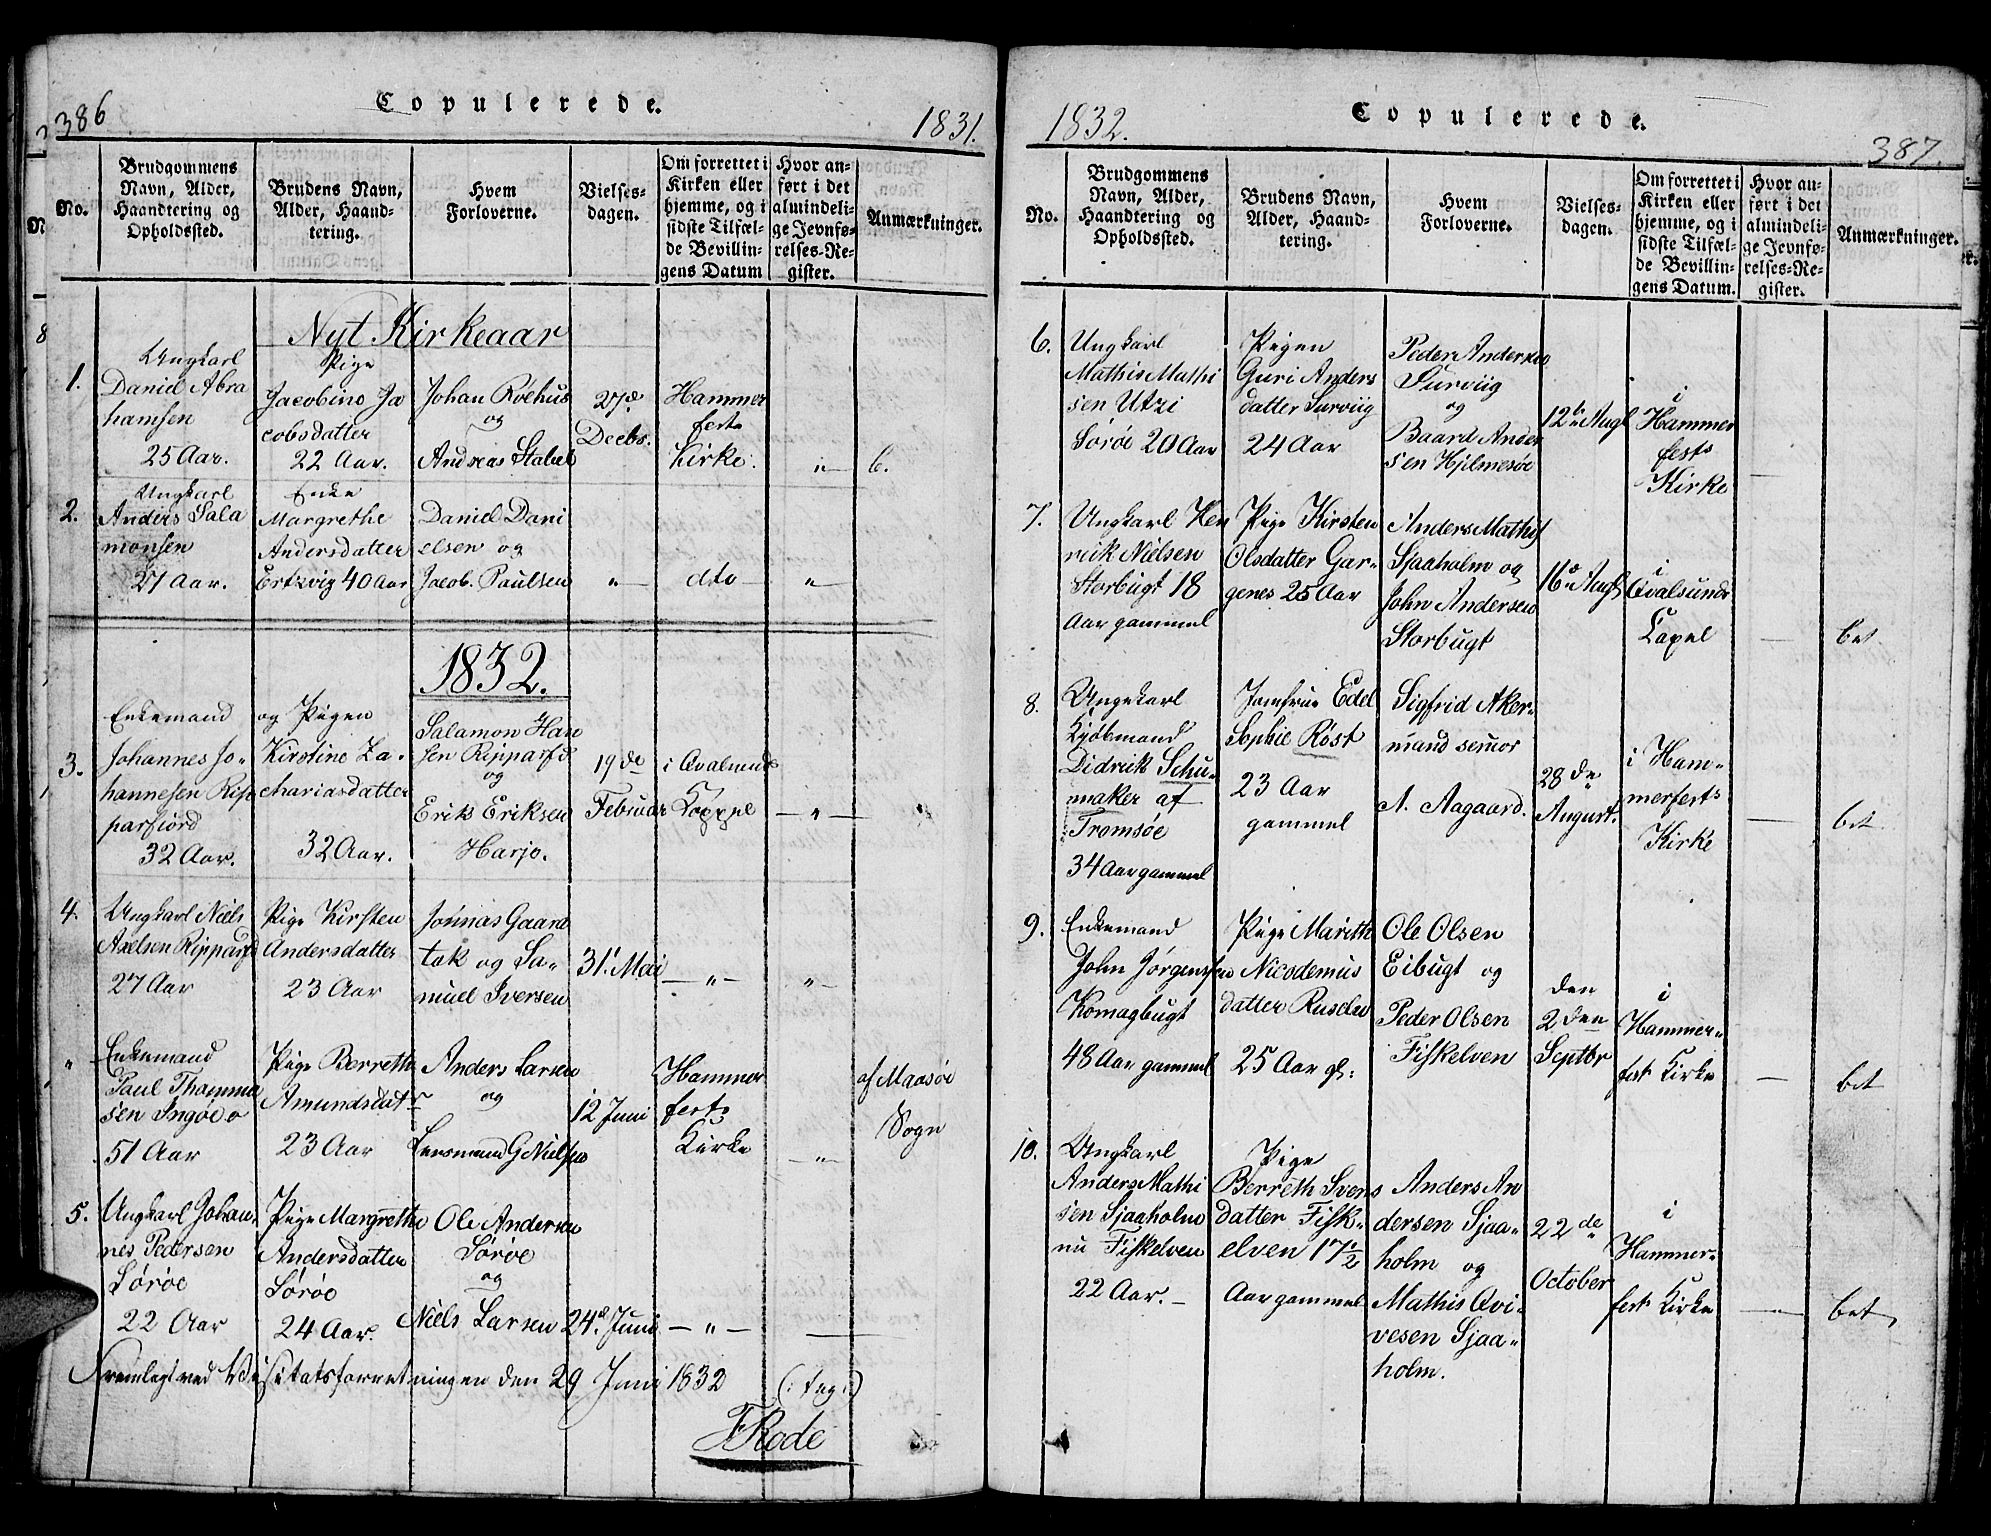 386
Copulerede.
1831.
No.
Brudgommens
Navn, Alder,
Haandtering og
Opholdssted.
Brudens Navn,
Alder, Haand-
tering.
Hvem
Forloverne.
Vielses-
dagen.
Om forrettet i
Kirken eller
hjemme, og i
sidste Tilfæl-
de Bevillin-
gens Datum
Hvor an-
ført i det
almindeli-
ge Jevnfø-
relses-Re-
gister.
Anmærkninger.
Nyt Kirkeaar
1.
Ungkarl
Daniel Abra
hamsen
25 Aar.
Pige
Jacobine Ja
cobsdatter
22 Aar.
Johan Röehus
og
Andreas Stabel
27de
Decbr.
Hammer
fest
Kirke.
"
b.
2.
Ungkarl
Anders Sala
monsen
27 Aar.
Enke
Margrethe
Andersdatter
Ertzvig 40 Aar
Daniel Dani
elsen og
Jacob Paulsen
"
dto
"
1832.
3.
Enkemand
Johannes Jo-
hannesen Rip
parfiord
32 Aar.
og Pigen
Kirstine Za-
chariasdatter
32 Aar.
Salamon Han
sen Ripparfd
og
Erik Eriksen
Harjo.
19de
Februar
i Qvalsund
Koppel
"
4.
Ungkarl Niels
Axelsen Ripparfd
27 Aar
Pige Kirsten
Andersdatter
23 Aar
Jonnas Gaara
tok og Sa-
muel Iversen
31t Mai
"
"
"
Enkemand
Paul Thomma
sen Ingöe
51 Aar
Pige Berreth
Amundsdatr
23 Aar
Anders Larsen
og
Lensmand G Nielsen
12 Juni
Hammer
fest
Kirke
"
af Maasöe
Sogn
5.
Ungkarl Johan-
nes Pedersen
Söröe
22 Aar
Pige Margrethe
Andersdatter
Söröe
24 Aar.
Ole Andersen
Söröe
og
Niels Larsen
24d Juni
"
Fremlagt ved Visitatsforretningen den 29 Juni 1832
(: tng :)
F Rode
1832.
Copulerede.
387.
No.
Brudgommens
Navn, Alder,
Haandtering og
Opholdssted.
Brudens Navn,
Alder, Haand-
tering.
Hvem
Forloverne.
Vielses-
dagen.
Om forrettet i
Kirken eller
hjemme, og i
sidste Tilfæl-
de Bevillin-
gens Datum.
Hvor an-
ført i det
almindeli-
ge Jevnfø-
relses-Re-
gister.
Anmærkninger.
6.
Ungkarl
Mathis Mathi
sen Utzi
Söröe 20 Aar
Pigen
Guri Anders
datter Surviig
24 Aar
Peder Andersen
Surviig
og
Baard Ander
sen Hjelmesöe
12te Augt
i
Hammer
fest
Kirke
7.
Ungkarl Hen
rick Nielsen
Storbugt 18
Aar gammel
Pige Kirsten
Olsdatter Gar-
genes 25 Aar
Anders Mathis
Sjaaholm og
John Andersen
Storbugt
16de Augt
i
Qvalsund
Capel
bet
8.
Ungekarl
Kjöbmand
Didrick Schu-
maker af
Tromsöe
34 Aar gammel
Jomfrue Edel
Sophie Röst
23 Aar
gammel
Sigfrid Aker-
mand senior
A. Aagaard.
28de
August.
i Ham-
merfest
Kirke
bet
9.
Enkemand
John Jörgensen
Komagbugt
48 Aar gammel
Pige Marith
Nicodemus
datter Ruselv
25 Aar gl:
Ole Olsen
Eibugt og
Peder Olsen
Fiskelven
den
2den
Septbr
i
Hammer-
fest Kirke
bet
10.
Ungkarl
Anders Mathi
sen Sjaaholm
nu Fiskelven
22 Aar.
Pige
Berreth Svens
datter Fisk-
elven 17 1/2
Aar gammel
Anders An
dersen Sjaa-
holm og
Mathis Qvi-
vesen Sjaa-
holm.
22de
October
i
Hammer-
fest Kirke
bet